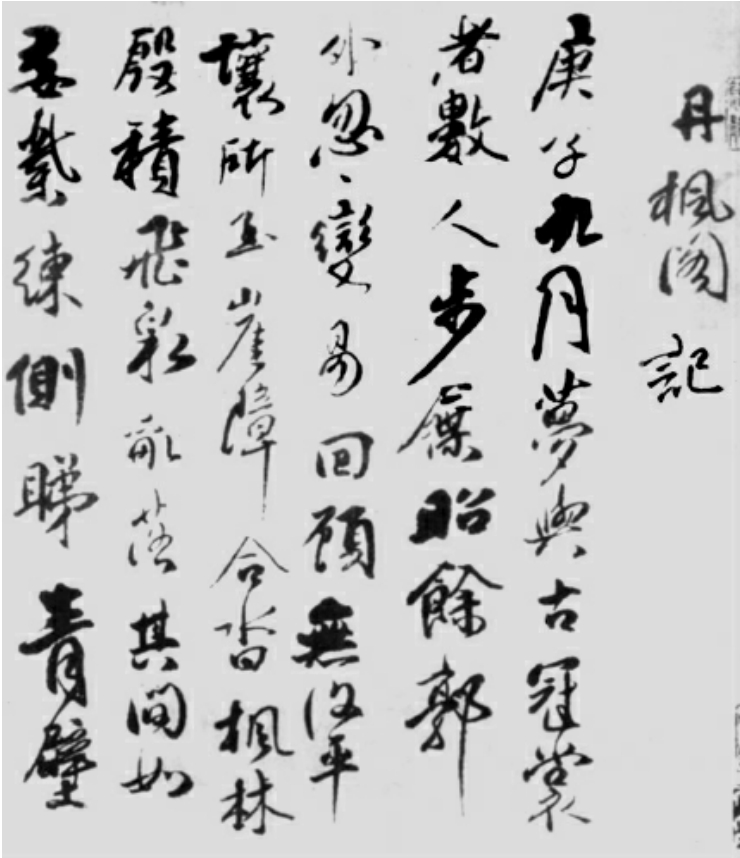 丹楓閣記
庚子九月夢與古冠裳
者數人步屧昭餘郭
外忽〻變易回顧無復平
壤所至崖障合沓楓林
殷積飛彩亂落其間如
委縈練側睇青壁